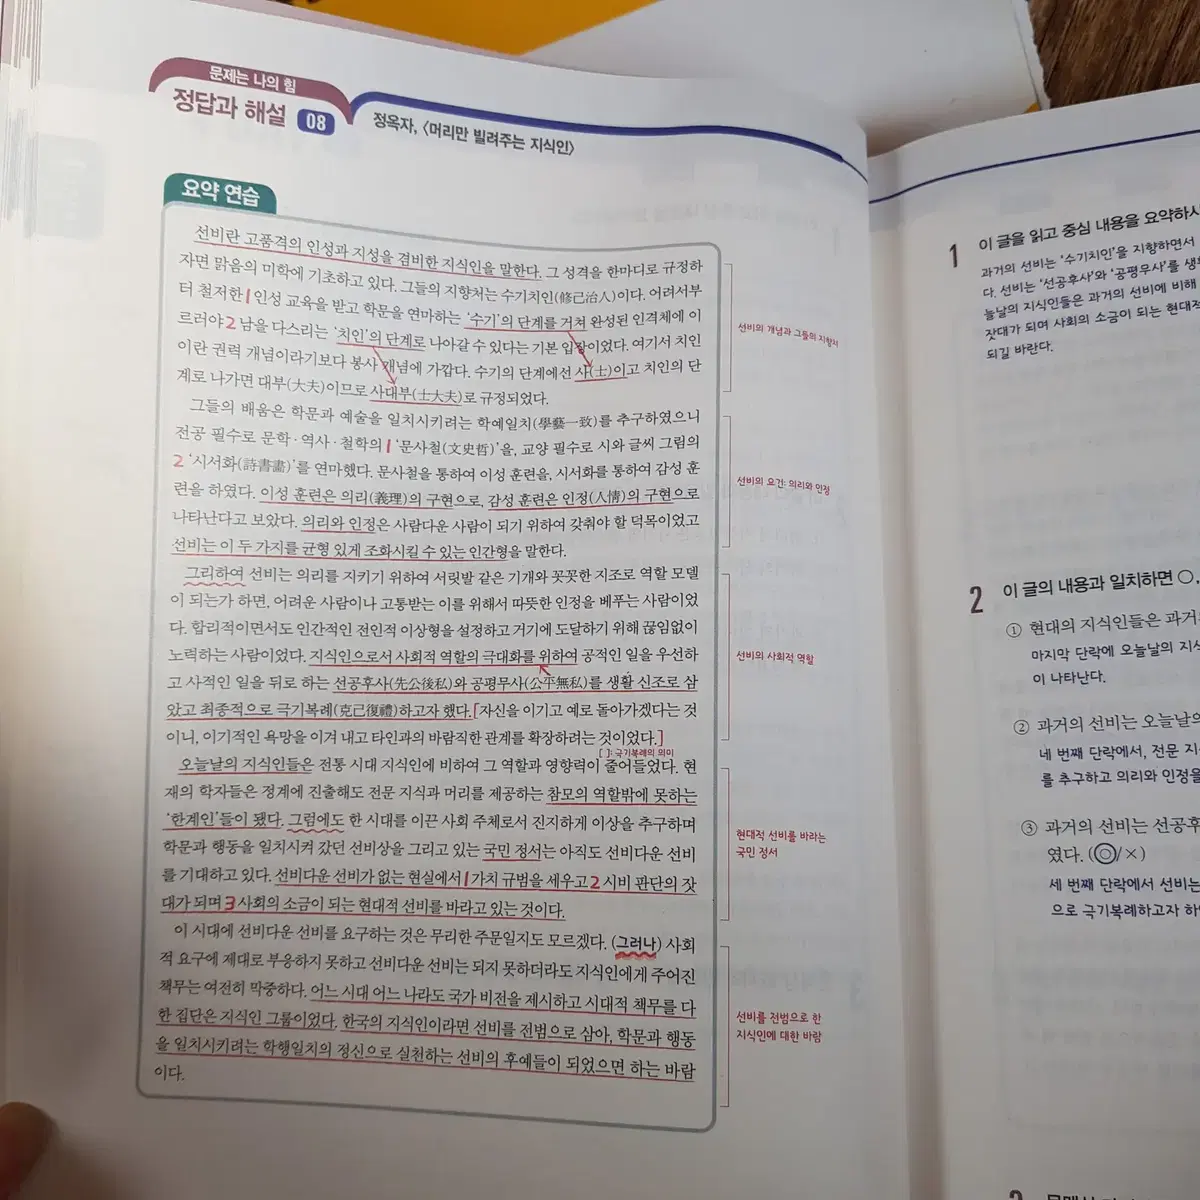 문제는 나의 힘
정답과 해설 08
정옥자, <머리만 빌려주는 지식인>
요약 연습
선비란 고품격의 인성과 지성을 겸비한 지식인을 말한다. 그 성격을 한마디로 규정하
자면 맑음의 미학에 기초하고 있다. 그들의 지향처는 수기치인(修己治人)이다. 어려서부
터 철저한 1 인성 교육을 받고 학문을 연마하는 '수기'의 단계를 거쳐 완성된 인격체에 이
르러야 2 남을 다스리는 '치인'의 단계로 나아갈 수 있다는 기본 입장이었다. 여기서 치인
이란 권력 개념이라기보다 봉사 개념에 가깝다. 수기의 단계에선 사(士)이고 치인의 단
계로 나가면 대부(大夫)이므로 사대부(士大夫)로 규정되었다.
선비의 개념과 그들의 지향처
그들의 배움은 학문과 예술을 일치시키려는 학예일치(學藝一致)를 추구하였으니
전공 필수로 문학·역사·철학의 1 '문사철(文史哲)'을, 교양 필수로 시와 글씨 그림의
2 '시서화(詩書畵)'를 연마했다. 문사철을 통하여 이성 훈련을, 시서화를 통하여 감성 훈
련을 하였다. 이성 훈련은 의리(義理)의 구현으로, 감성 훈련은 인정(人情)의 구현으로
나타난다고 보았다. 의리와 인정은 사람다운 사람이 되기 위하여 갖춰야 할 덕목이었고
선비는 이 두 가지를 균형 있게 조화시킬 수 있는 인간형을 말한다.
선비의 요건: 의리와 인정
그리하여 선비는 의리를 지키기 위하여 서릿발 같은 기개와 꼿꼿한 지조로 역할 모델
이 되는가 하면, 어려운 사람이나 고통받는 이를 위해서 따뜻한 인정을 베푸는 사람이었
다. 합리적이면서도 인간적인 전인적 이상형을 설정하고 거기에 도달하기 위해 끊임없이
노력하는 사람이었다. 지식인으로서 사회적 역할의 극대화를 위하여 공적인 일을 우선하
고 사적인 일을 뒤로 하는 선공후사(先公後私)와 공평무사(公平無私)를 생활 신조로 삼
았고 최종적으로 극기복례(克己復禮)하고자 했다. [자신을 이기고 예로 돌아가겠다는 것
이니, 이기적인 욕망을 이겨 내고 타인과의 바람직한 관계를 확장하려는 것이었다.]
[ ]: 극기복례의 의미
선비의 사회적 역할
오늘날의 지식인들은 전통 시대 지식인에 비하여 그 역할과 영향력이 줄어들었다. 현
재의 학자들은 정계에 진출해도 전문 지식과 머리를 제공하는 참모의 역할밖에 못하는
'한계인'들이 됐다. 그럼에도 한 시대를 이끈 사회 주체로서 진지하게 이상을 추구하며
학문과 행동을 일치시켜 갔던 선비상을 그리고 있는 국민 정서는 아직도 선비다운 선비
를 기대하고 있다. 선비다운 선비가 없는 현실에서 1 가치 규범을 세우고 2 시비 판단의 잣
대가 되며 3 사회의 소금이 되는 현대적 선비를 바라고 있는 것이다.
현대적 선비를 바라는
국민 정서
이 시대에 선비다운 선비를 요구하는 것은 무리한 주문일지도 모르겠다. (그러나) 사회
적 요구에 제대로 부응하지 못하고 선비다운 선비는 되지 못하더라도 지식인에게 주어진
책무는 여전히 막중하다. 어느 시대 어느 나라도 국가 비전을 제시하고 시대적 책무를 다
한 집단은 지식인 그룹이었다. 한국의 지식인이라면 선비를 전범으로 삼아, 학문과 행동
을 일치시키려는 학행일치의 정신으로 실천하는 선비의 후예들이 되었으면 하는 바람
이다.
선비를 전범으로 한
지식인에 대한 바람
1 이 글을 읽고 중심 내용을 요약하시
과거의 선비는 '수기치인'을 지향하면서
다. 선비는 '선공후사'와 '공평무사'를 생
늘날의 지식인들은 과거의 선비에 비해
잣대가 되며 사회의 소금이 되는 현대적
되길 바란다.
2 이 글의 내용과 일치하면 ○,
① 현대의 지식인들은 과거
마지막 단락에 오늘날의 지식
이 나타난다.
② 과거의 선비는 오늘날의
네 번째 단락에서, 전문 지
를 추구하고 의리와 인정을
③ 과거의 선비는 선공후
였다. (◎/×)
세 번째 단락에서 선비는
으로 극기복례하고자 하